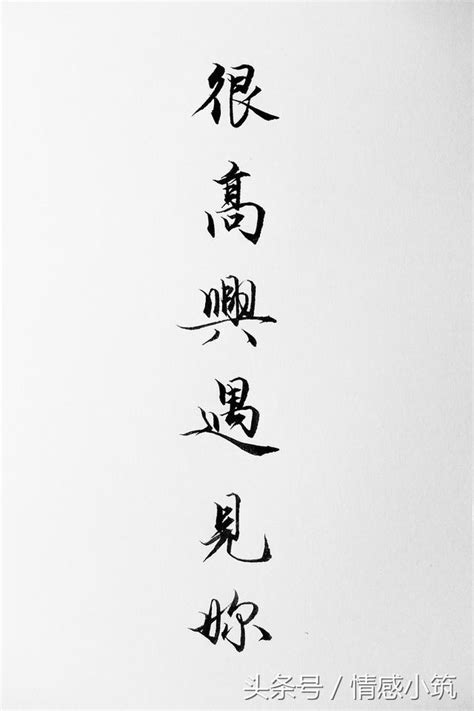 很高興遇見妳
头条号 / 情感小筑